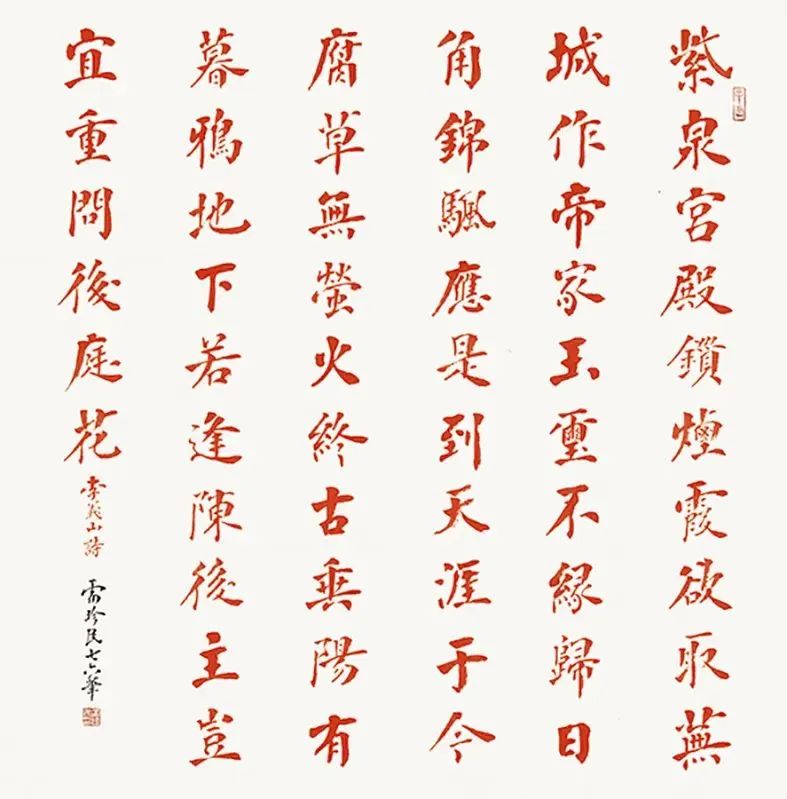 紫泉宮殿鎖煙霞欲取蕪
城作帝家玉璽不緣歸日
角錦颿應是到天涯于今
腐草無螢火終古垂陽有
暮鴉地下若逢陳後主豈
宜重問後庭花
李義山詩 雷珍民七六華